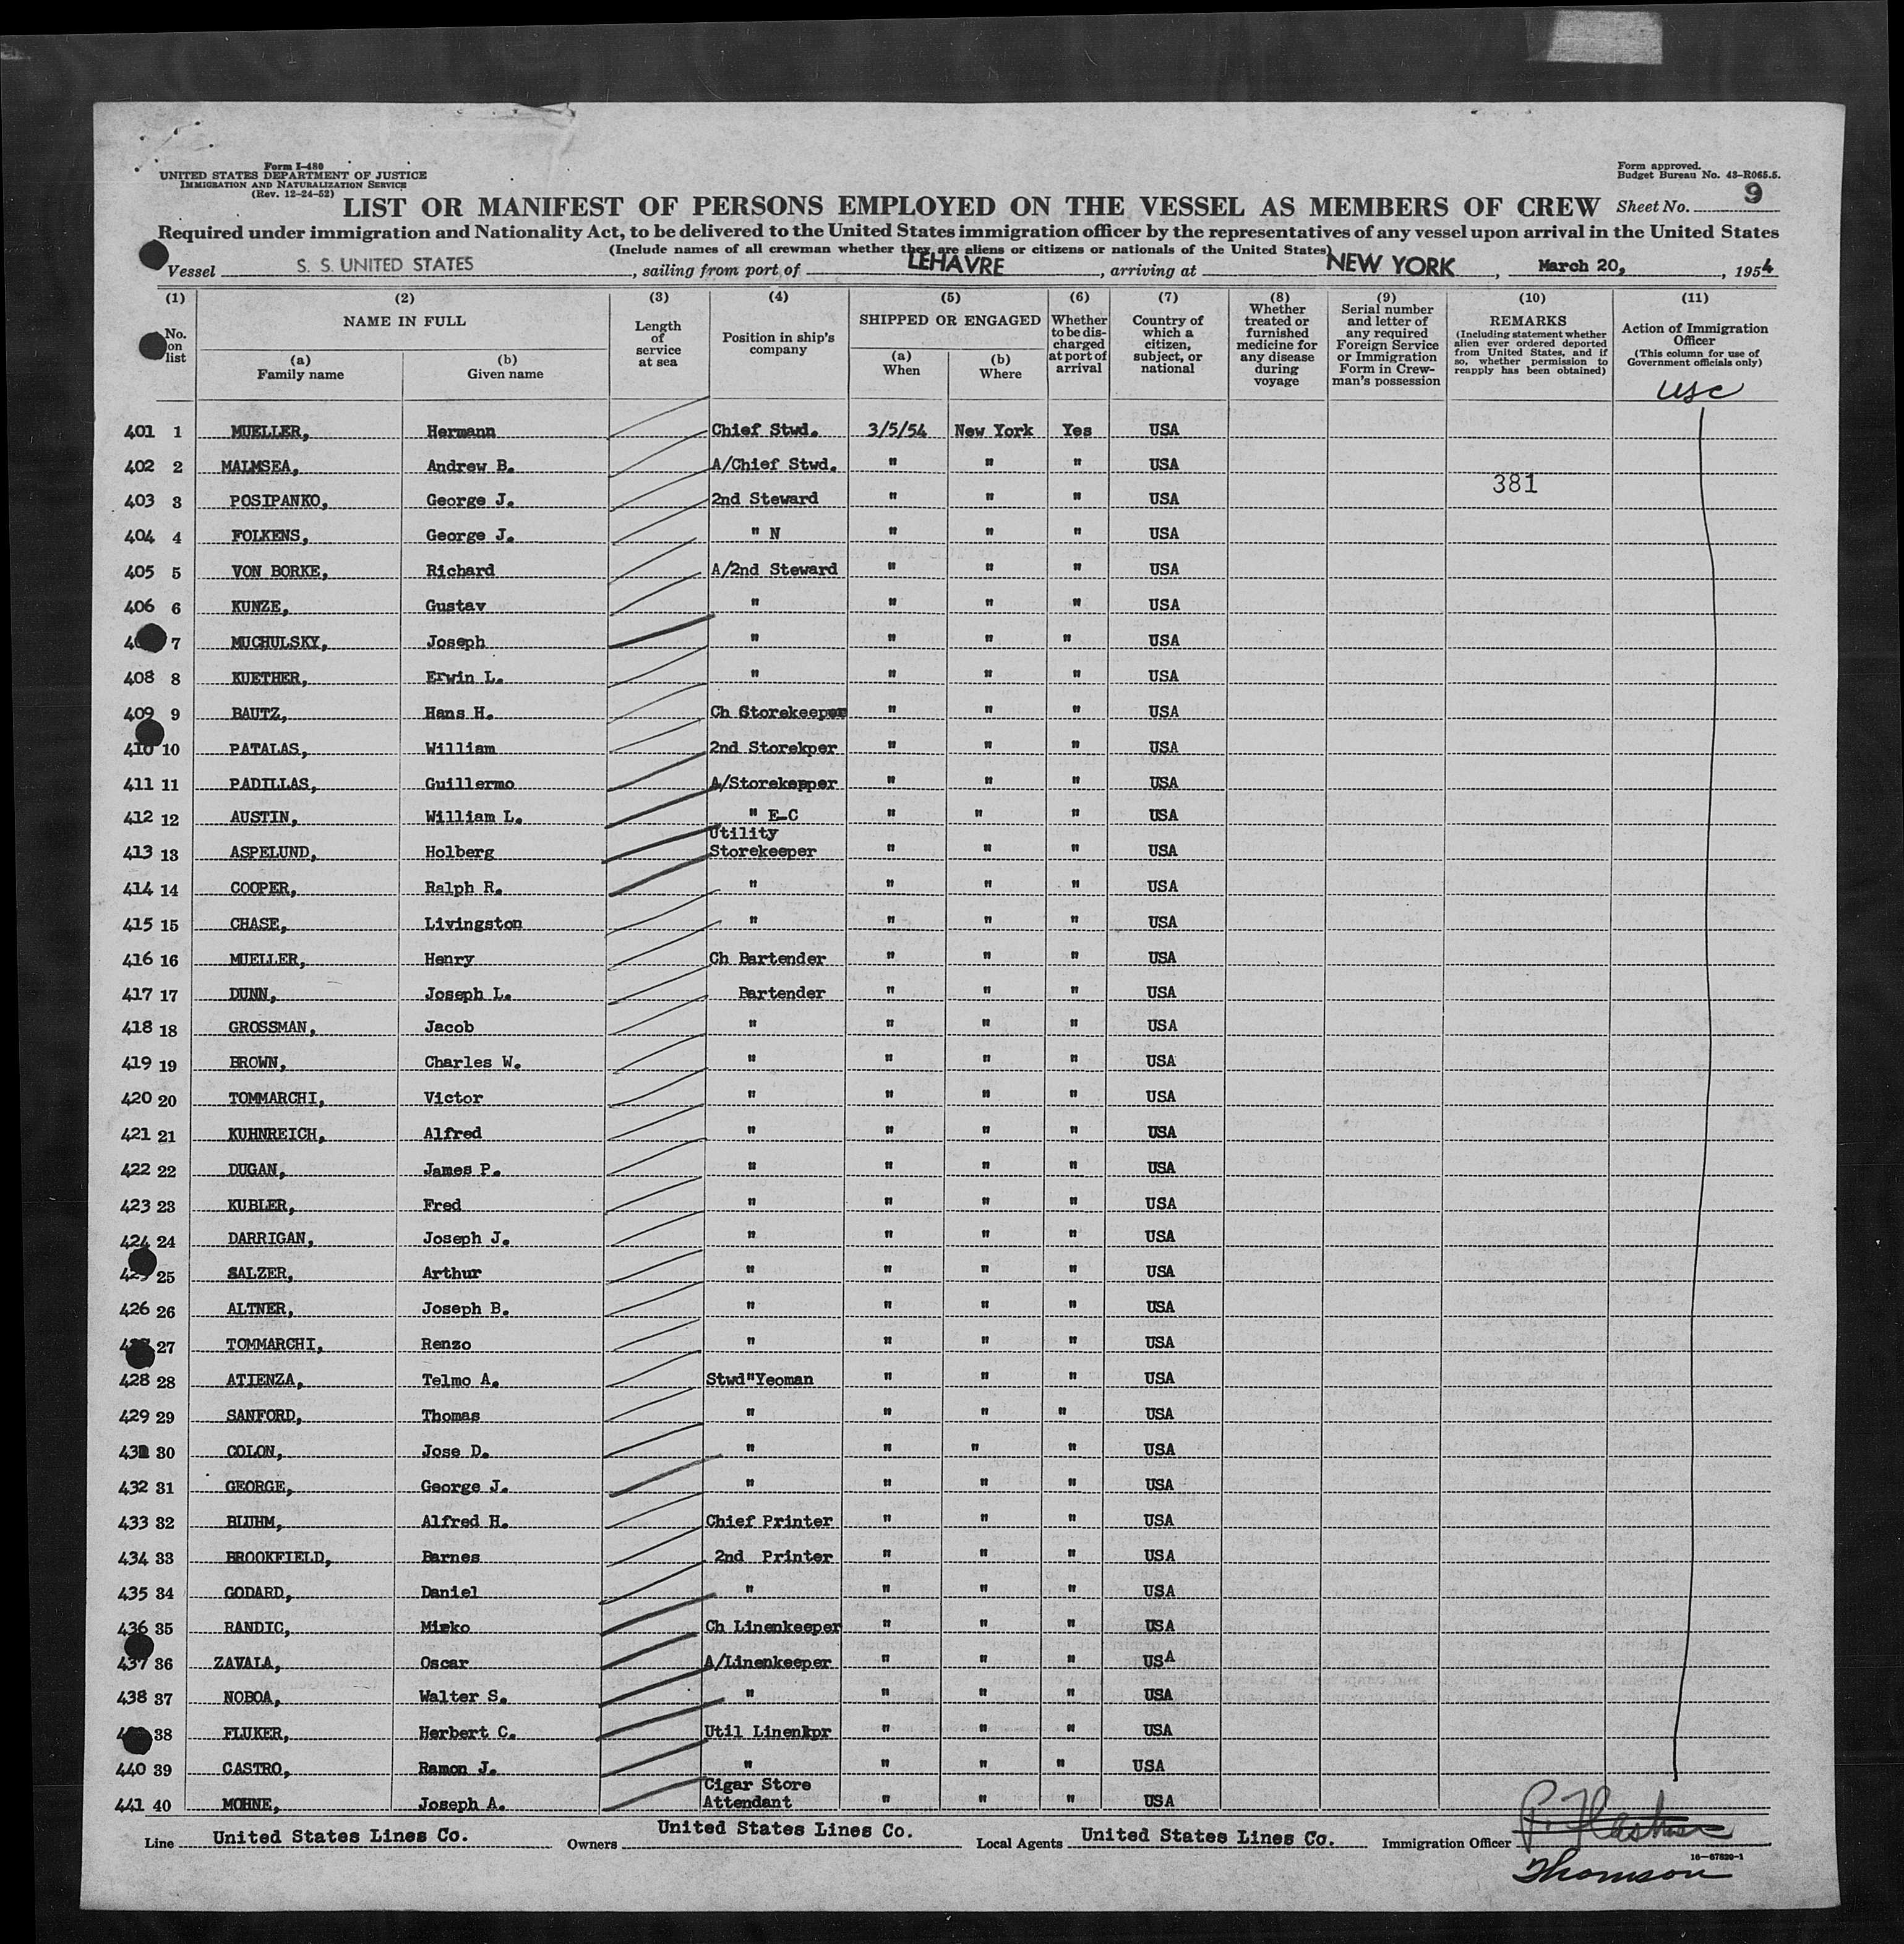 Form I-480
UNITED STATES DEPARTMENT OF JUSTICE
IMMIGRATION AND NATURALIZATION SERVICE
(Rev. 12-24-52)
Form approved.
Budget Bureau No. 43-R065.5.
LIST OR MANIFEST OF PERSONS EMPLOYED ON THE VESSEL AS MEMBERS OF CREW Sheet No. 9
Required under immigration and Nationality Act, to be delivered to the United States immigration officer by the representatives of any vessel upon arrival in the United States
(Include names of all crewman whether they are aliens or citizens or nationals of the United States)
Vessel S. S. UNITED STATES, sailing from port of LEHAVRE, arriving at NEW YORK, March 20, 1954
(1) (2) (3) (4) (5) (6) (7) (8) (9) (10) (11)
No. on list
NAME IN FULL
(a) Family name
(b) Given name
Length of service at sea
Position in ship's company
SHIPPED OR ENGAGED
(a) When
(b) Where
Whether to be discharged at port of arrival
Country of which a citizen, subject, or national
Whether treated or furnished medicine for any disease during voyage
Serial number and letter of any required Foreign Service or Immigration Form in Crewman's possession
REMARKS
(Including statement whether alien ever ordered deported from United States, and if so, whether permission to reapply has been obtained)
Action of Immigration Officer
(This column for use of Government officials only)
usc
401 1 MUELLER, Hermann Chief Stwd. 3/5/54 New York Yes USA
402 2 MALMSEA, Andrew B. A/Chief Stwd. " " " USA
381
403 3 POSIPANKO, George J. 2nd Steward " " " USA
404 4 FOLKENS, George J. " N " " " USA
405 5 VON BORKE, Richard A/2nd Steward " " " USA
406 6 KUNZE, Gustav " " " " USA
7 MUCHULSKY, Joseph " " " " USA
408 8 KUETHER, Erwin L. " " " " USA
409 9 BAUTZ, Hans H. Ch Storekeeper " " " USA
410 10 PATALAS, William 2nd Storekper " " " USA
411 11 PADILLAS, Guillermo A/Storekepper " " " USA
412 12 AUSTIN, William L. " E-C " " " USA
413 13 ASPELUND, Holberg Utility Storekeeper " " " USA
414 14 COOPER, Ralph R. " " " " USA
415 15 CHASE, Livingston " " " " USA
416 16 MUELLER, Henry Ch Bartender " " " USA
417 17 DUNN, Joseph L. Bartender " " " USA
418 18 GROSSMAN, Jacob " " " " USA
419 19 BROWN, Charles W. " " " " USA
420 20 TOMMARCHI, Victor " " " " USA
421 21 KUHNREICH, Alfred " " " " USA
422 22 DUGAN, James P. " " " " USA
423 23 KUBLER, Fred " " " " USA
424 24 DARRIGAN, Joseph J. " " " " USA
25 SALZER, Arthur " " " " USA
426 26 ALTNER, Joseph B. " " " " USA
27 TOMMARCHI, Renzo " " " " USA
428 28 ATIENZA, Telmo A. Stwd"Yeoman " " " USA
429 29 SANFORD, Thomas " " " " USA
30 COLON, Jose D. " " " " USA
432 31 GEORGE, George J. " " " " USA
433 32 BLUHM, Alfred H. Chief Printer " " " USA
434 33 BROOKFIELD, Barnes 2nd Printer " " " USA
435 34 GODARD, Daniel " " " " USA
436 35 RANDIC, Mirko Ch Linenkeeper " " " USA
437 36 ZAVALA, Oscar A/Linenkeeper " " " USA
438 37 NOBOA, Walter S. " " " " USA
38 FLUKER, Herbert C. Util Linenkpr " " " USA
440 39 CASTRO, Ramon J. " " " " USA
441 40 MOHNE, Joseph A. Cigar Store Attendant " " " USA
Line United States Lines Co. Owners United States Lines Co. Local Agents United States Lines Co. Immigration Officer
16-67829-1
Thomson